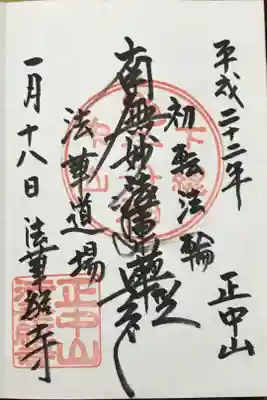 平成二十二年 正中山
初転法輪
南無妙法蓮華経
法華道場
一月十八日 法華経寺
正中山